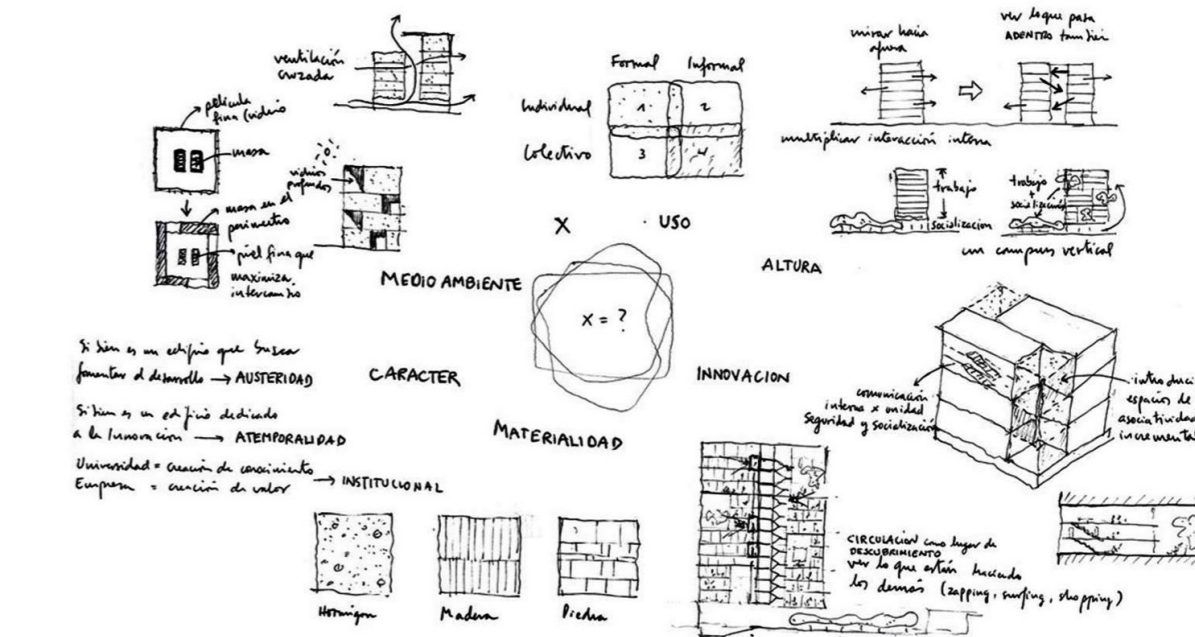 ventilación
cruzada
película
fina (vidrio
masa
masa en el
perímetro
piel fina que
maximiza
intercambio
vidrios
profundos
Formal Informal
Individual
Colectivo
1 2
3 4
mirar hacia
afuera
ver lo que pasa
ADENTRO también
multiplicar interacción interna
trabajo
socialización
trabajo
+
socialización
un campus vertical
X · USO
MEDIO AMBIENTE
ALTURA
X = ?
CARACTER
INNOVACION
MATERIALIDAD
Si bien es un edificio que busca
fomentar el desarrollo → AUSTERIDAD
Si bien es un edificio dedicado
a la Innovación → ATEMPORALIDAD
Universidad = creación de conocimiento
Empresa = creación de valor → INSTITUCIONAL
Hormigon
Madera
Piedra
comunicación
interna x unidad
Seguridad y socialización
introduci
espacios de
asociatividad
incrementa
CIRCULACION como lugar de
DESCUBRIMIENTO
ver lo que están haciendo
los demás (zapping, surfing, shopping)